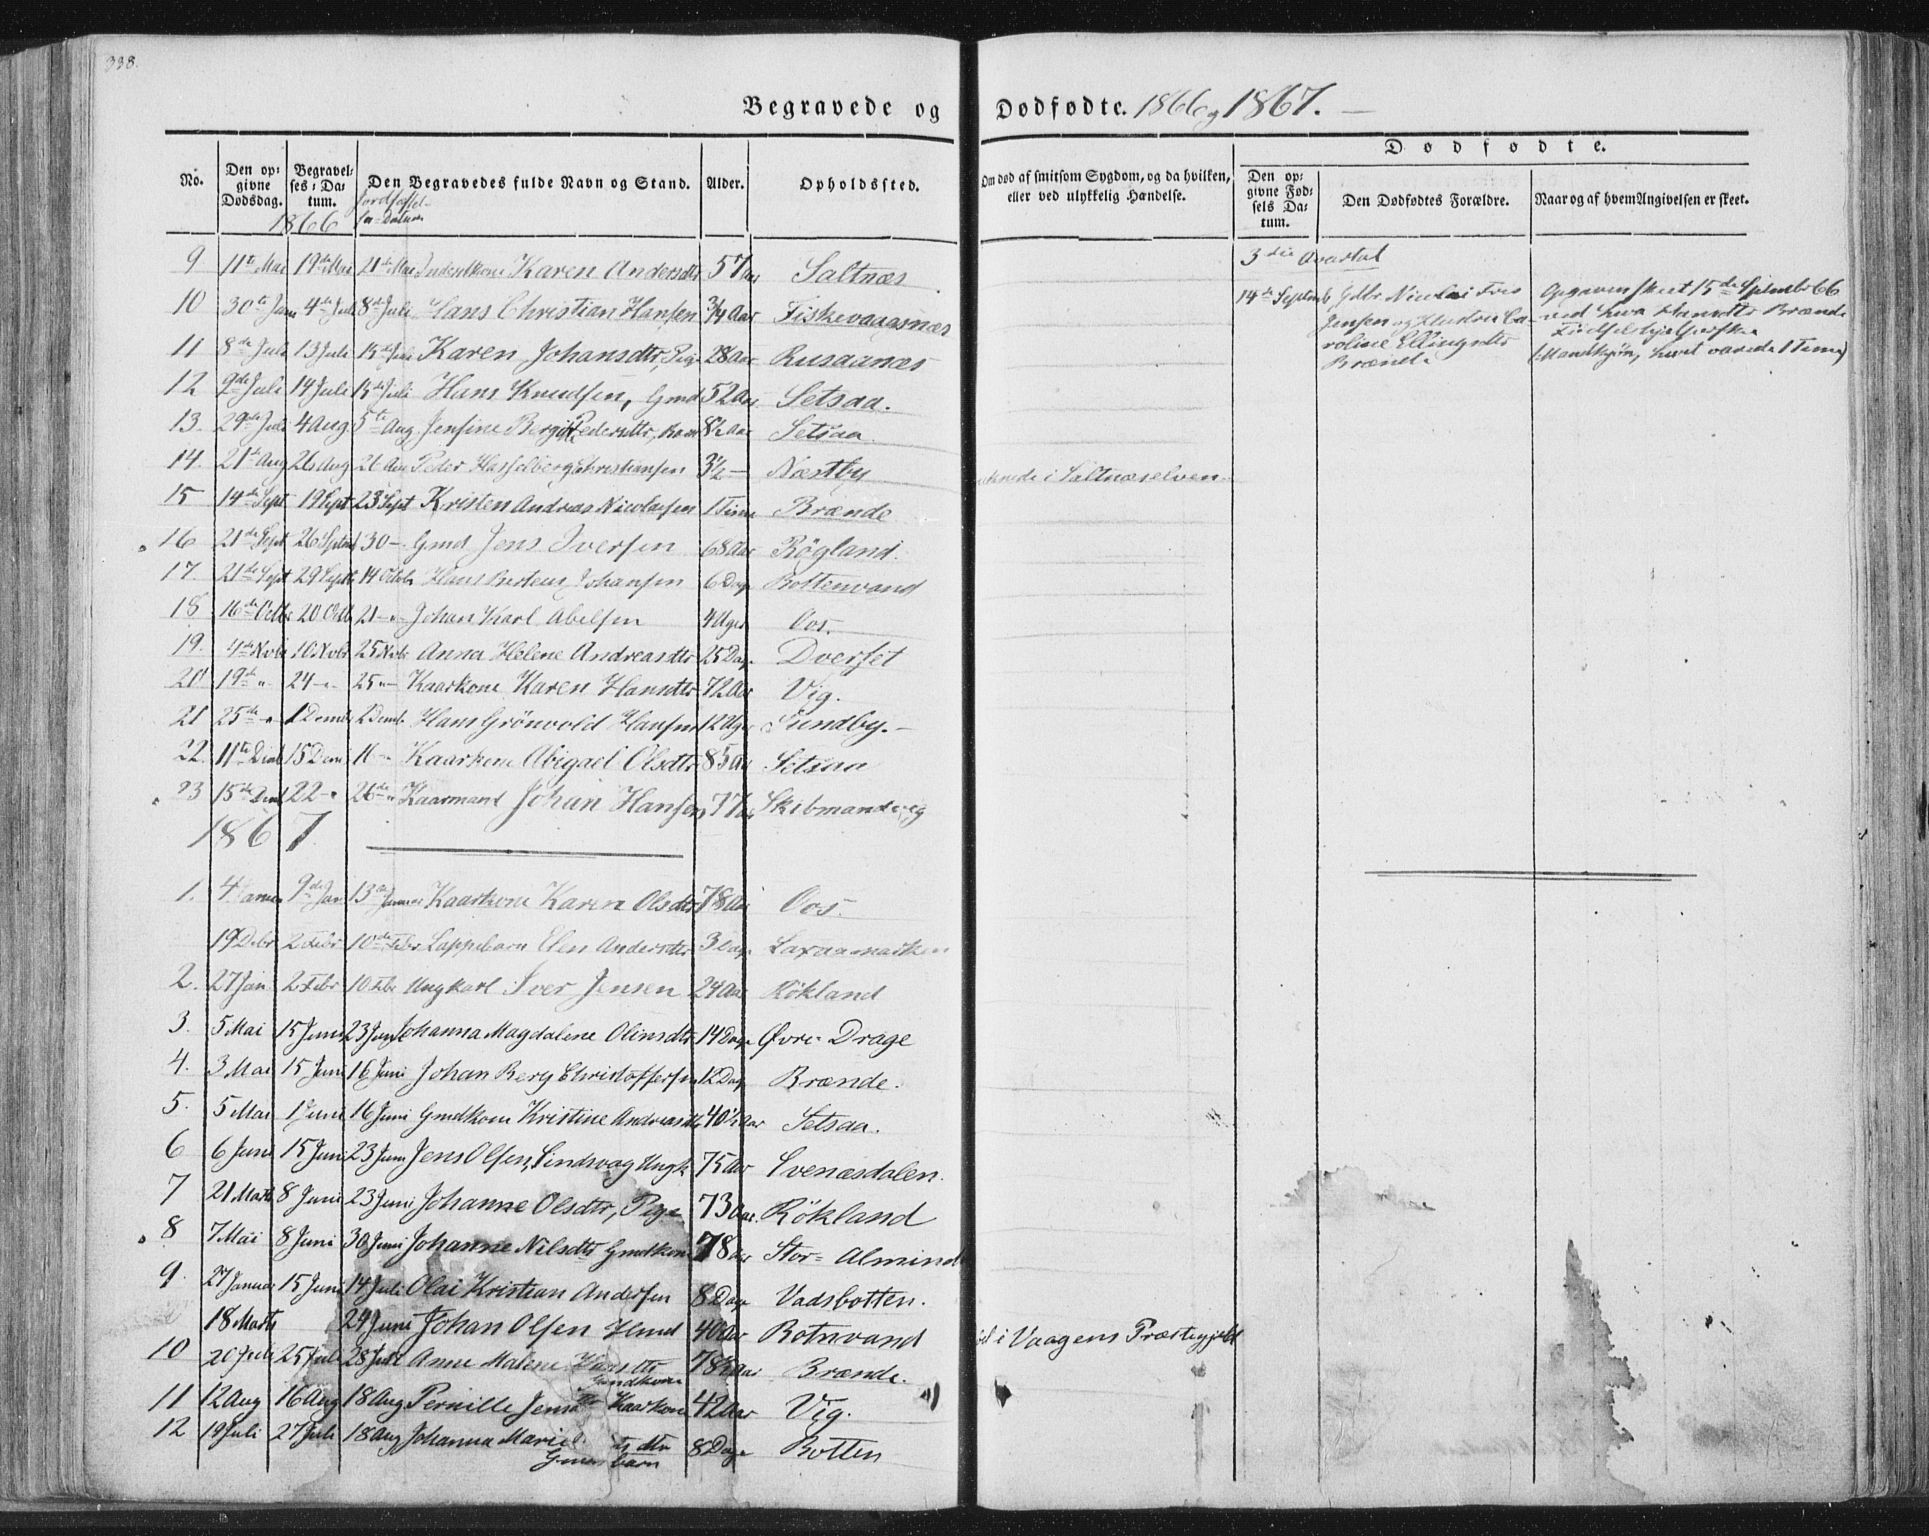 338.
Begravede og Dødfødte. 1866 og 1867. —
No. Den opgivne Dødsdag. Begravelses-Datum. Den Begravedes fulde Navn og Stand. Alder. Opholdssted. Om død af smitsom Sygdom, og da hvilken, eller ved ulykkelig Hændelse.
Dødfødte.
Den opgivne Fødsels Datum. Den Dødfødtes Forældre. Naar og af hvem Angivelsen er skeet.
1866
9 11te Mai 19de Mai 21de Mai Karen Andersdtr 57 Aar Saltnæs
10 30te Juni 4de Juli 8de Juli Hans Christian Hansen 3/4 Aar Fiskevaagsnæs
11 8de Juli 13 Juli 15de Juli Karen Johansdtr, Pige 28 Aar Rusaanæs
12 9de Juli 14 Juli 15de Juli Hans Knudsen, Gmd 52 Aar Setsaa.
13. 29de Juli 4 Aug 5te Aug Jensine Pedersdtr, Barn 8½ Aar Setsaa
14. 21de Aug 26 Aug 26 Aug Peder Hasselberg Christiansen 3½ — Næstby i Saltnæselven
15 14de Sept 19 Sept 23 Sept Kristen Andreas Nicolaisen 1 Time Brænde
16 21de Sept 26 Septemb 30 — Gmd Jens Iversen 68 Aar Røgland.
17. 21de Sept 29 Septb 14 Octob Hans Johansen 6 Dage Bottenvand
18 16de Octbr 20 Octb 21 — Johan Karl Abelsen 4 Uger Oos.
19. 4de Novbr 10 Novbr 25 Novbr Anna Helene Andreasdtr 25 Dage Dverset
20 19de " 24 — 25 — Kaarkone Karen Hansdtr 72 Aar Vig.
21 25de " 1 Decmb 2 Decmb Hans Grönvold Hansen 12 Uger Sundby. —
22. 11te Decmb 15 Decm 16 — Kaarkone Abigael Olsdtr 85 Aar Setsaa
23 15de Decmb 22 — 26de " Kaarmand Johan Hansen 77 Aar Skibmandvig
3die Qvartal
14de Septemb Gdbr. Nicolai
Jensen og Hustru Ca-
roline Ellingsdtr
Brænde
Opgaven skeet 15de September 66
ved Hansdtr Brænde
Fødselshjelperske
(Mandkjøn, levet 1 Time)
1867
1. 4 Januar 9de Jan 13de Januar Kaarkone Karen Olsdtr 78 Aar Oos.
19 Decbr 2 Febr 10de Febr Lappebarn Elen Andersdtr 3 Dage Laxaamarken
2. 27 Jan 2 Febr 10 Febr Ungkarl Iver Jensen 24 Aar Røkland
3. 5 Mai 15 Juni 23 Juni Johanna Magdalene Olinsdtr 14 Dage Øvre-Drage
4. 3 Mai 15 Juni 16 Juni Johan Berg Christoffersen 12 Dage Brænde.
5. 5 Mai 1 Juni 16 Juni Gmdkone Kristine Andreasdtr 40½ Aar Setsaa.
6 6 Juni 15 Juni 23 Juni Jens Olsen, Sindsvag Ungk 75 Aar Evenæsdalen.
7 21 Marts 8 Juni 23 Juni Johanne Olsdtr, Pige 73 Aar Røkland
8 7 Mai 8 Juni 30 Juni Johanne Nilsdtr Gmdkone 78 Aar Stor-Almind
9. 27 Januar 15 Juni 14 Juli Olai Kristian Andersen 8 Dage Vadsbotten.
18 Marts 24 Juni Johan Olsen 40 Aar Botnvand i Vaagens Præstegjeld
10 20 Juli 25 Juli 28 Juli Anne Malene Hansdtr 78½ Aar Brænde.
Gmdkone
11 12 Aug 16 Aug 18 Aug Pernille Jensdtr Kaarkone 42 Aar Vig.
12 19 Juli 27 Juli 18 Aug Johanna Marie 8 Dage Botten